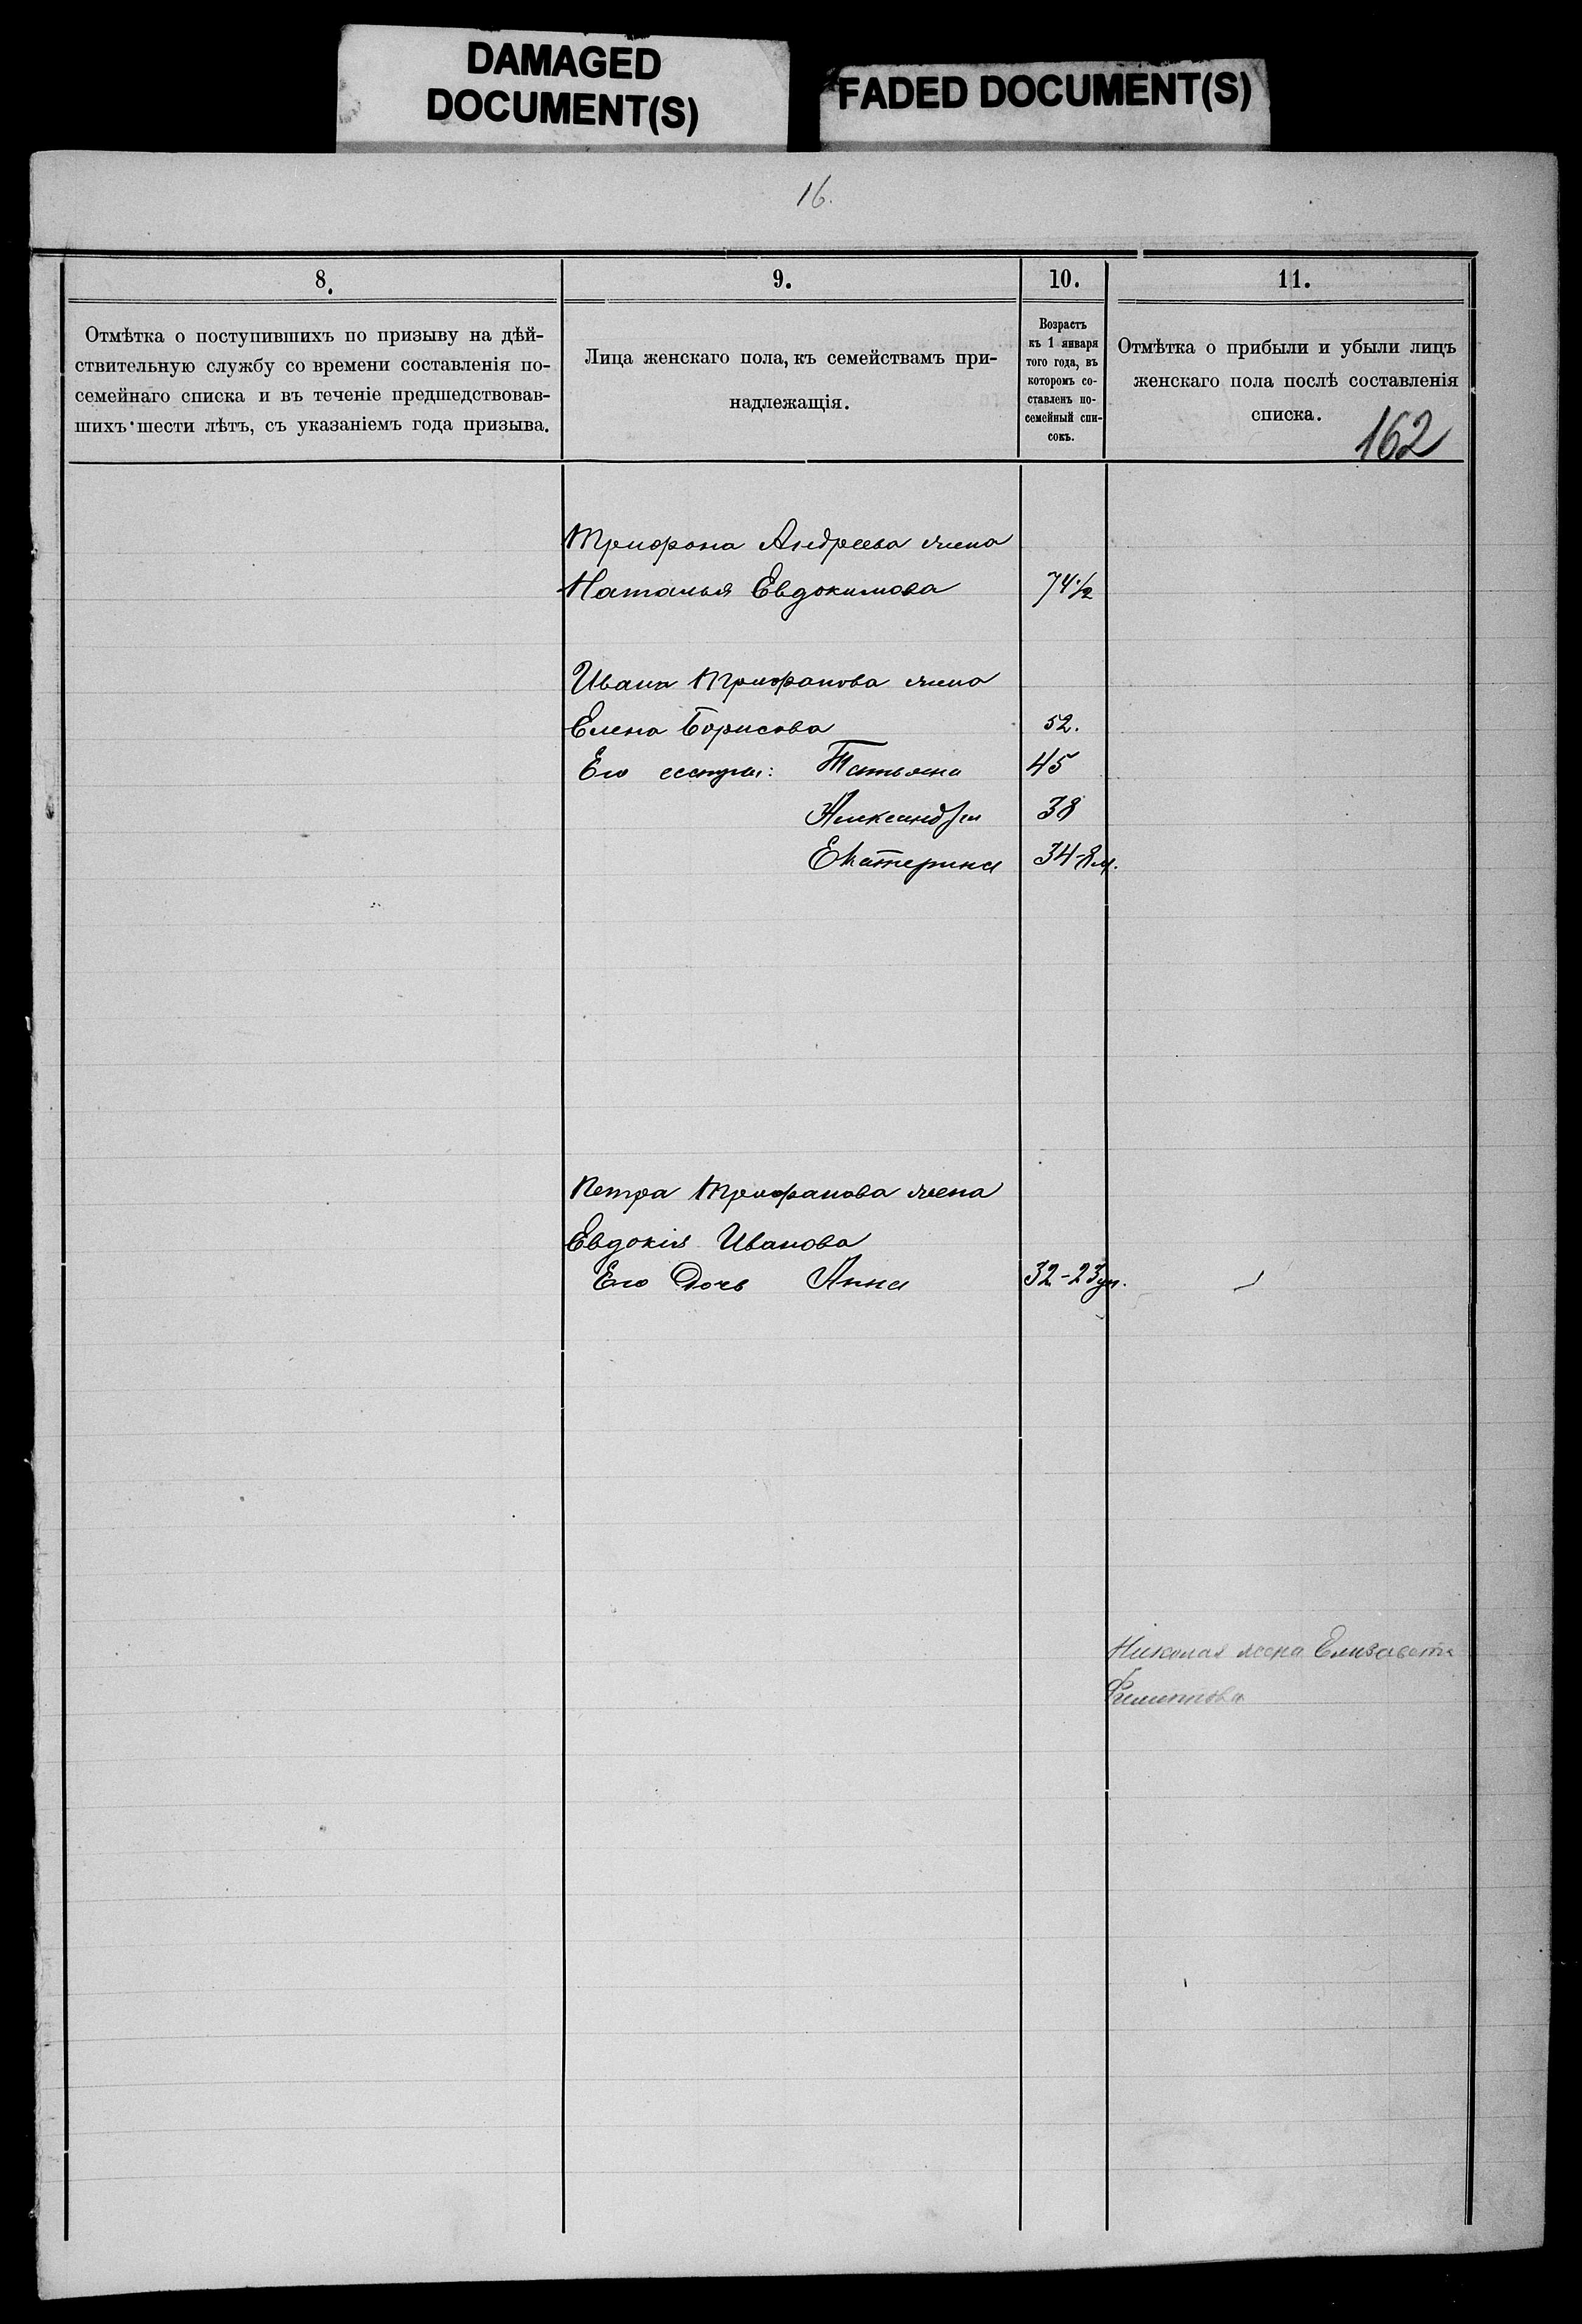 DAMAGED
DOCUMENT(S)
FADED DOCUMENT(S)
16.
8.
Отмѣтка о поступившихъ по призыву на дѣй-
ствительную службу со времени составленія по-
семейнаго списка и въ теченіе предшедствовав-
шихъ шести лѣтъ, съ указаніемъ года призыва.
9.
Лица женскаго пола, къ семействамъ при-
надлежащія.
10.
Возрастъ
къ 1 января
того года, въ
которомъ со-
ставленъ по-
семейный спи-
сокъ.
11.
Отмѣтка о прибыли и убыли лицъ
женскаго пола послѣ составленія
списка.
162
Трифона Андреева жена
Наталья Евдокимова 74 1/2
Ивана Трифанова жена
Елена Борисова 52.
Его сестры: Татьяна 45
Александра 38
Екатерина 34-8м.
Петра Трифанова жена
Евдокія Иванова
Его дочь Анна 32-23
Николая жена Елизавета
Филиппова